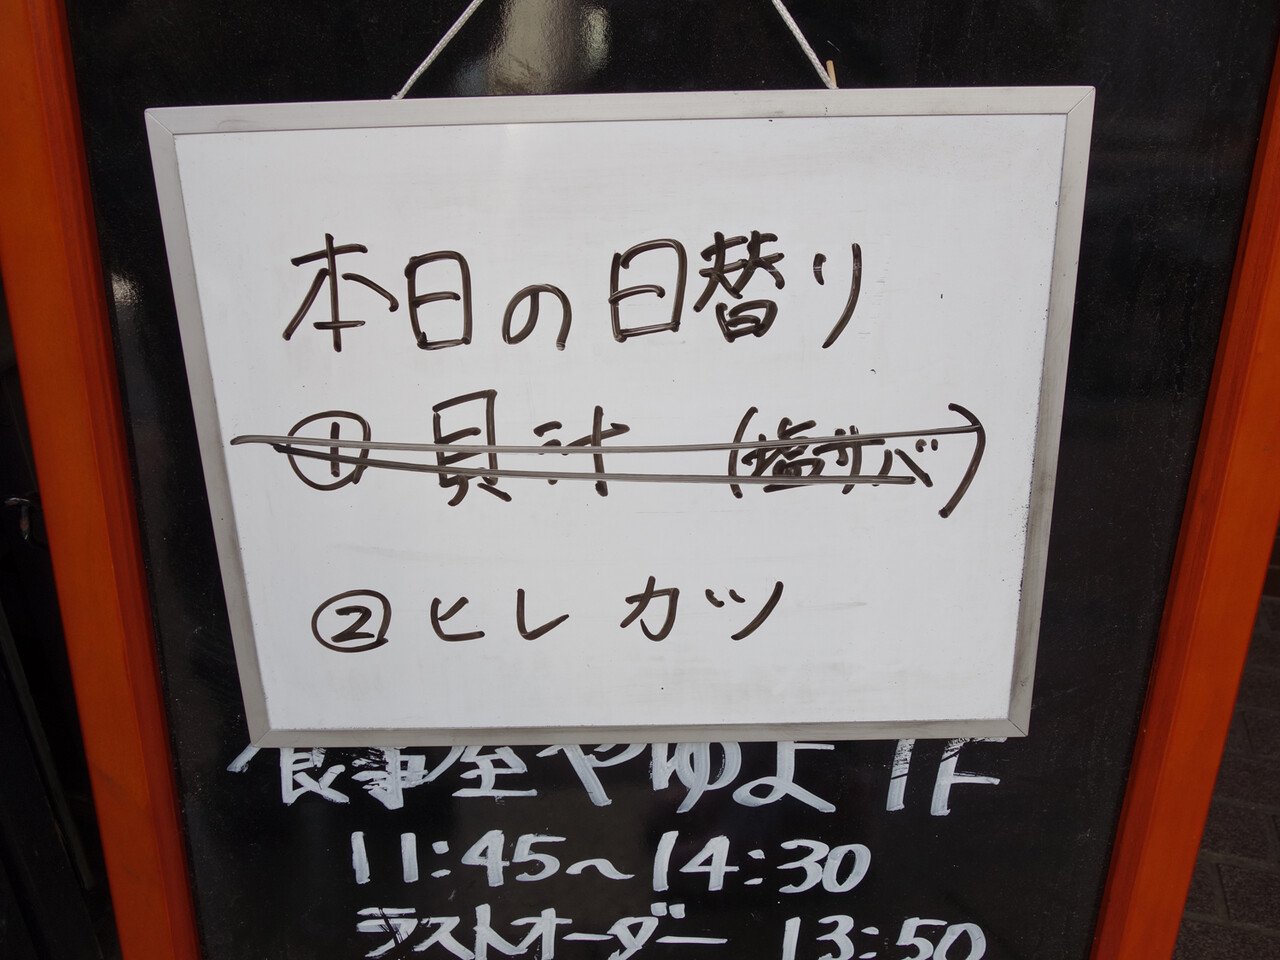 本日の日替り
① 貝汁 (塩サバ)
② ヒレカツ
食事室やゆよ 1F
11:45〜14:30
ラストオーダー 13:50